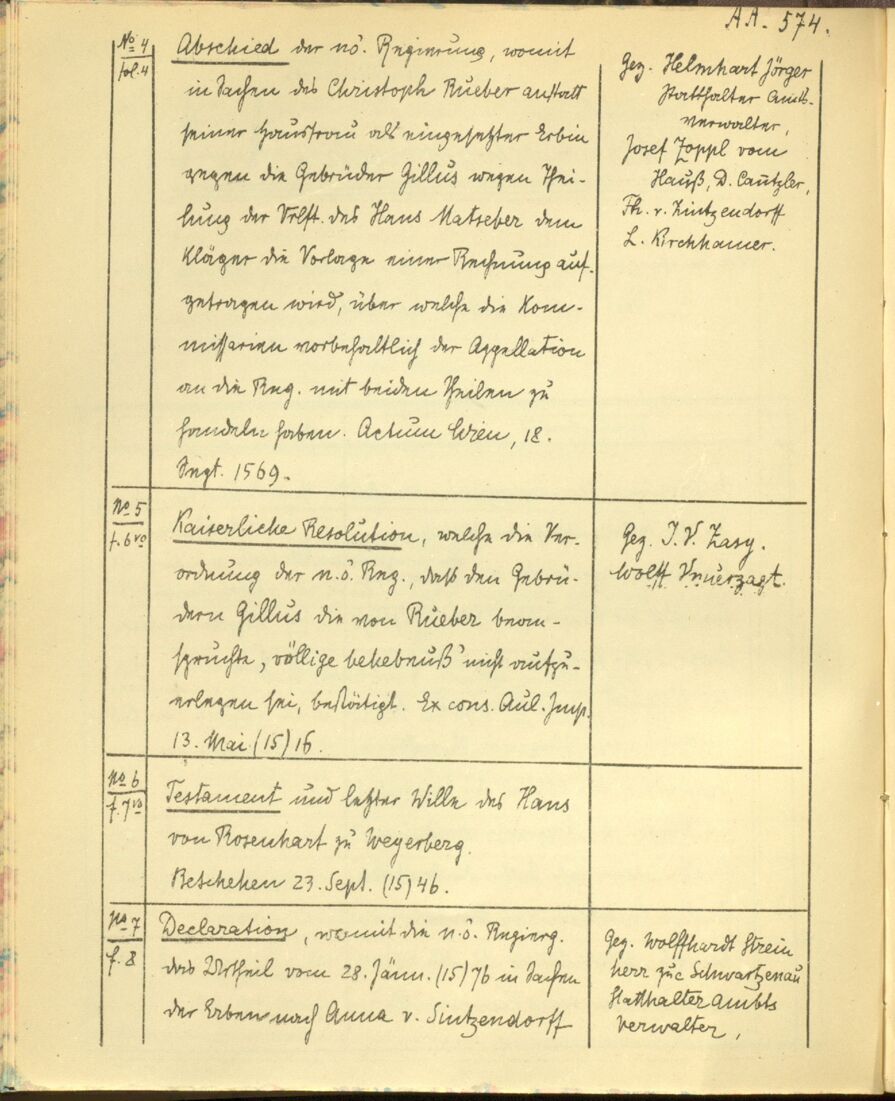 AA. 574.
No 4
fol. 4
Abschied der nö. Regierung, womit
in Sachen des Christoph Rueber anstatt
seiner Hausfrau als eingesetzter Erbin
gegen die Gebrüder Gillus wegen Thei-
lung der Vrlft. des Hans Matseber dem
Kläger die Vorlage einer Rechnung auf-
getragen wird, über welche die Kom-
missarien vorbehaltlich der Appellation
an die Reg. mit beiden Theilen zu
handeln haben. Actum Wien, 18.
Sept. 1569.
Gez. Helmhart Jörger
Statthalter Amts-
verwalter,
Josef Zoppl vom
Hauß, D. Cantzler,
Th. v. Zintzendorff
L. Kirchhamer.
No 5
f. 6 vo
Kaiserliche Resolution, welche die Ver-
ordnung der n.ö. Reg., daß den Gebrü-
dern Gillus die von Rueber bean-
spruchte, völlige bekebnuß' nicht aufzu-
erlegen sei, bestätigt. Ex cons. Aul. Imp.
13. Mai (15)16.
Gez. J. V. Zasy.
Wolff Vnuerzagt.
No 6
f. 7 vo
Testament und letzter Wille des Hans
von Rosenhart zu Weyerberg.
Beschehen 23. Sept. (15)46.
No 7
f. 8
Declaration, womit die n.ö. Regierg.
das Urtheil vom 28. Jänn. (15)76 in Sachen
der Erben nach Anna v. Sintzendorff
Gez. Wolffhardt Strein
herr zuc Schwartzenau
Statthalter Ambts
Verwalter,